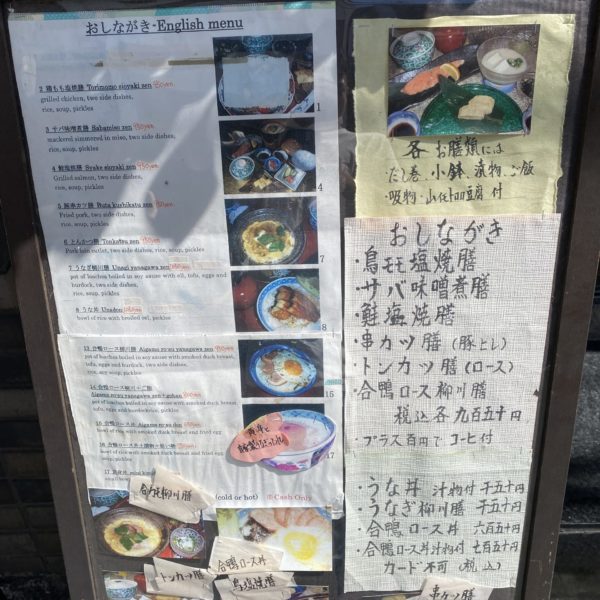 おしながき-English menu
2 鶏もも塩焼膳 Torimomo sioyaki zen 950yen
grilled chicken, two side dishes,
rice, soup, pickles
3 サバ味噌煮膳 Sabamiso zen 950yen
mackerel simmered in miso, two side dishes,
rice, soup, pickles
4 鮭塩焼膳 Syake sioyaki zen 950yen
Grilled salmon, two side dishes,
rice, soup, pickles
5 豚串カツ膳 Buta kushikatu zen 950yen
Fried pork, two side dishes,
rice, soup, pickles
6 とんかつ膳 Tonkatsu zen 950yen
Pork loin cutlet, two side dishes, rice, soup, pickles
7 うなぎ柳川膳 Unagi yanagawa zen
pot of loaches boiled in soy sauce with oil, tofu, eggs and
burdock, two side dishes,
rice, soup, pickles
8 うな丼 Unadon
bowl of rice with broiled eel, pickles
13 合鴨ロース柳川膳 Aigamo ro-su yanagawa zen
pot of loaches boiled in soy sauce with smoked duck breast,
tofu, eggs and burdock, two side dishes,
rice, soy soup, pickles
14 合鴨ロース柳川+ご飯
Aigamo ro-su yanagawa zen + gohan
pot of loaches boiled in soy sauce with smoked duck breast,
tofu, eggs and burdock, rice, pickles
15 合鴨ロース丼 Aigamo ro-su don
bowl of rice with smoked duck breast and fried egg
16
bowl of rice with smoked duck breast and fried egg
17
(cold or hot) ※Cash Only
1
4
7
8
15
17
合鴨柳川膳
トンカツ膳
合鴨ロース丼
鳥塩焼膳
串カツ膳
各お膳類には
だし巻、小鉢、漬物、ご飯
・吸物・山伝トロ豆腐付
おしながき
・鳥モモ塩焼膳
・サバ味噌煮膳
・鮭塩焼膳
・串カツ膳(豚ヒレ)
・トンカツ膳(ロース)
・合鴨ロース柳川膳
税込各九百五十円
・プラス百円でコーヒー付
・うな丼 汁物付 千五十円
・うなぎ柳川膳 千五十円
・合鴨ロース丼 六百五十円
・合鴨ロース丼汁物付 七百五十円
カード不可(税込)